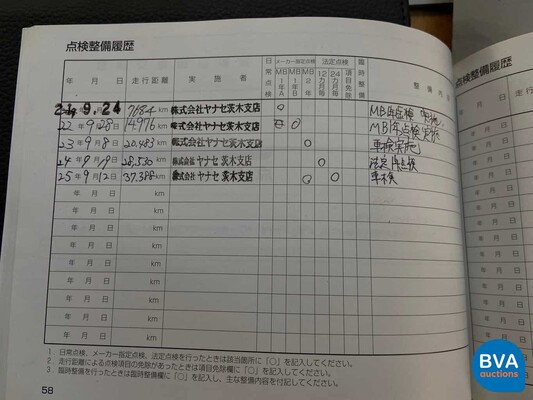 点検整備履歴
年 月 日 走行距離 実施者 日常点検 メーカー指定点検 MB1年A MB1年B MB2年 法定点検 12カ月毎 24カ月毎 項目免除 臨時整備 整備内
21.9.24 7684 km 株式会社ヤナセ茨木支店 ○ MB 点検 実施
22年9月28日 14,976 km 株式会社ヤナセ茨木支店 ○ MB1年点検実施
23年9月8日 20,483 km 株式会社ヤナセ茨木支店 ○ 車検実施
24年9月19日 28,530 km 株式会社ヤナセ 茨木支店 ○ 法定 点検
25年9月12日 37,388 km 株式会社ヤナセ 茨木支店 ○ ○ 車検
年 月 日 km
年 月 日 km
年 月 日 km
年 月 日 km
年 月 日 km
年 月 日 km
年 月 日 km
年 月 日 km
1. 日常点検、メーカー指定点検、法定点検を行ったときは該当箇所に「○」を記入してください。
2. 走行距離による点検項目の免除があったときは項目免除欄に「○」を記入してください。
3. 臨時整備を行ったときは臨時整備欄に「○」を記入し、主な整備内容を付記してください。
58
点検整備履歴
年 月
BVA
auctions